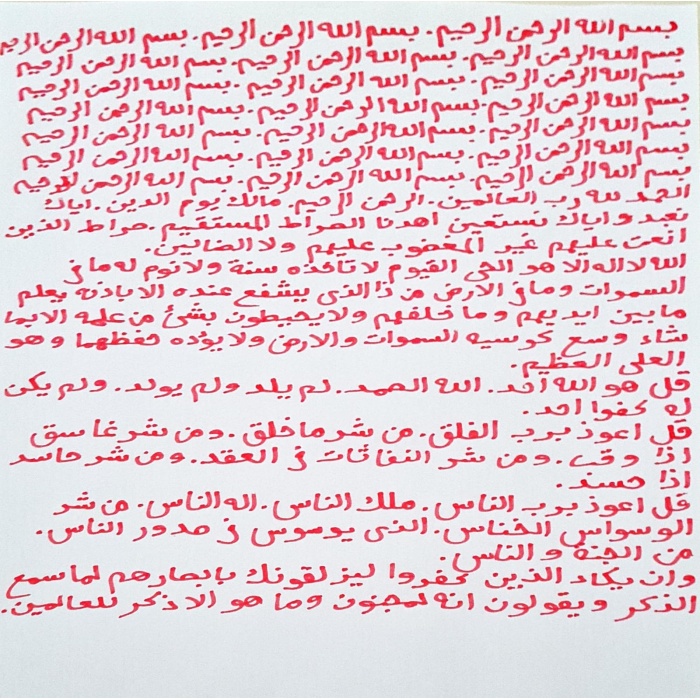 بسم الله الرحمن الرحيم. بسم الله الرحمن الرحيم. بسم الله الرحمن الرحيم
بسم الله الرحمن الرحيم. بسم الله الرحمن الرحيم. بسم الله الرحمن الرحيم
بسم الله الرحمن الرحيم. بسم الله الرحمن الرحيم. بسم الله الرحمن الرحيم
بسم الله الرحمن الرحيم. بسم الله الرحمن الرحيم. بسم الله الرحمن الرحيم
بسم الله الرحمن الرحيم. بسم الله الرحمن الرحيم. بسم الله الرحمن الرحيم
بسم الله الرحمن الرحيم. بسم الله الرحمن الرحيم. بسم الله الرحمن الرحيم
بسم الله الرحمن الرحيم. بسم الله الرحمن الرحيم. بسم الله الرحمن الرحيم
الحمد لله رب العالمين. الرحمن الرحيم. مالك يوم الدين. اياك
نعبد و اياك نستعين اهدنا الصراط المستقيم. صراط الذين
انعمت عليهم غير المغضوب عليهم ولا الضالين.
الله لا اله الا هو الحى القيوم لا تأخذه سنة ولا نوم له ما فى
السموات وما فى الارض من ذا الذى يشفع عنده الا باذنه يعلم
ما بين ايديهم وما خلفهم ولا يحيطون بشئ من علمه الا بما
شاء وسع كرسيه السموات والارض ولا يؤده حفظهما وهو
العلى العظيم.
قل هو الله احد. الله الصمد. لم يلد ولم يولد. ولم يكن
له كفوا احد.
قل اعوذ برب الفلق. من شر ما خلق. ومن شر غاسق
اذا وقب. ومن شر النفاثات فى العقد. ومن شر حاسد
اذا حسد.
قل اعوذ برب الناس. ملك الناس. اله الناس. من شر
الوسواس الخناس. الذى يوسوس فى صدور الناس.
من الجنة و الناس.
وان يكاد الذين كفروا ليزلقونك بابصارهم لما سمع
الذكر ويقولون انه لمجنون وما هو الا ذكر للعالمين.